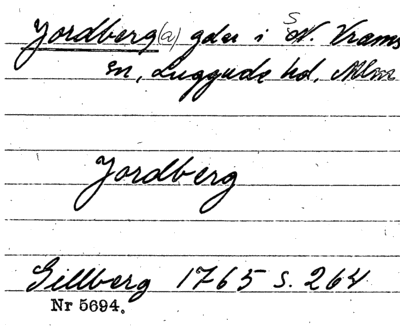 Jordberg(a) gdar i N. Vrams
S
sn, Luggude hd, Mlm
Jordberg
Gillberg 1765 s. 264
Nr 5694.